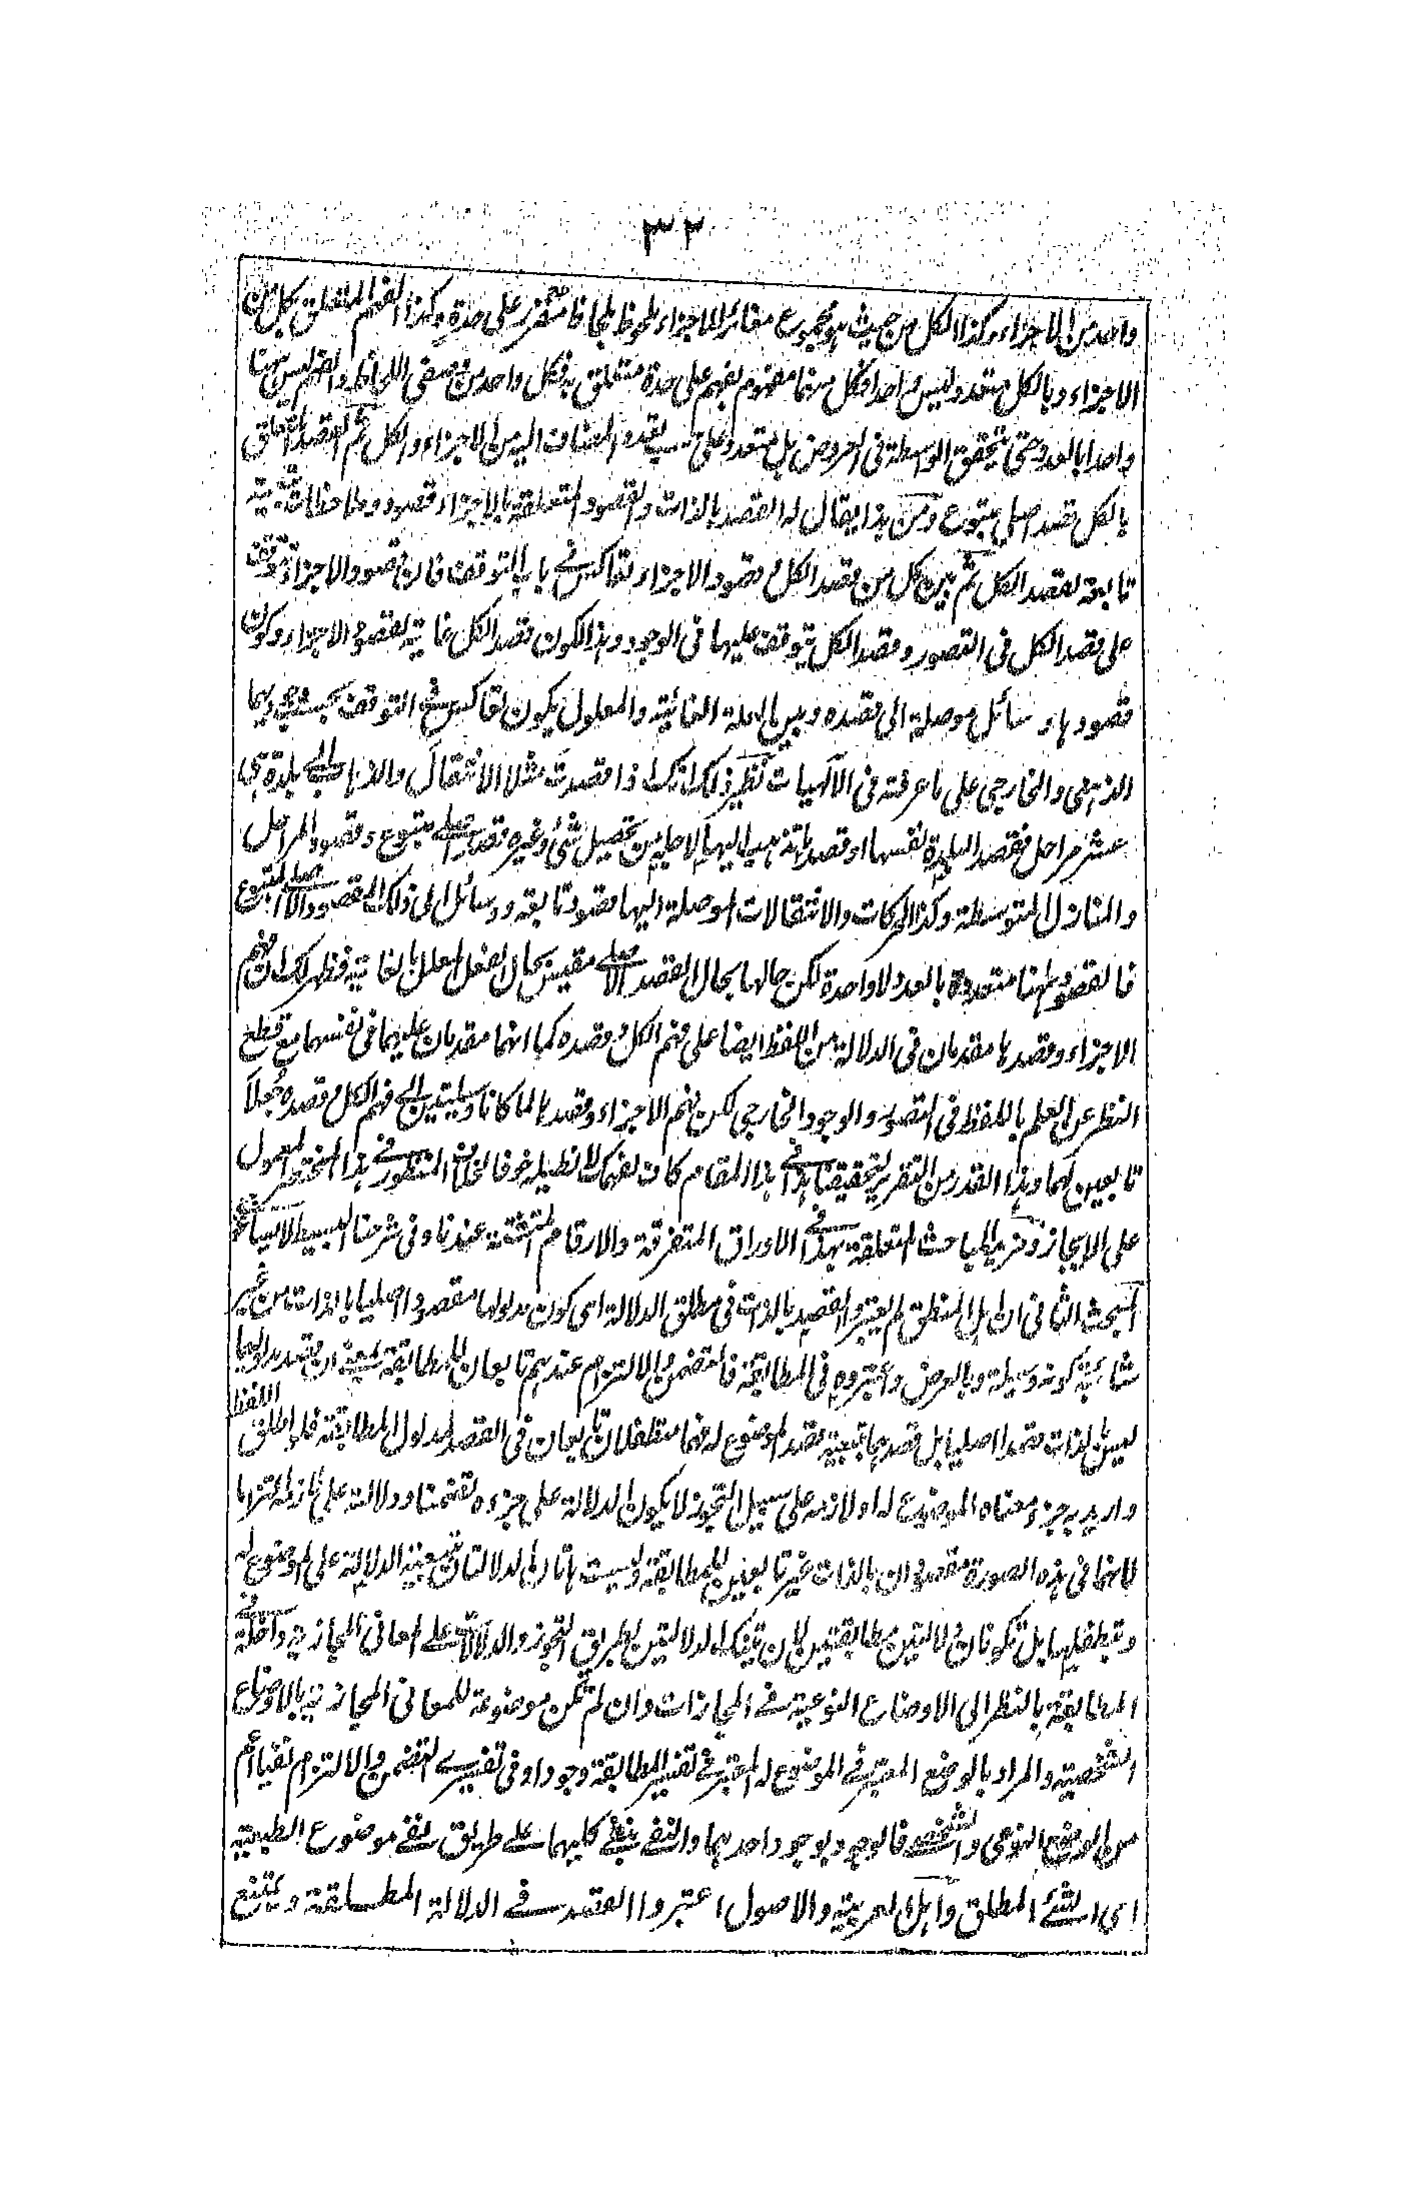 ٣٣
واحد من الاجزاء وكذا الكل من حيث هو مجموع مغائر للاجزاء ملحوظ بلحاظ متفرز على حدة وكذا الفهم المتعلق بكل من
الاجزاء وبالكل متعدد وليس واحدا فكل منهما مفهوم بفهم على حدة متعلق به فكل واحد من اللحاظ والفهم ليس هنا
واحدا بالعدد حتى يتحقق الواسطة فى العروض بل متعدد على تعدد المضاف اليه من الاجزاء والكل ثم القصد المتعلق
بالكل قصد اصلى متبوع ومن هذا يقال له القصد بالذات والقصود المتعلقة بالاجزاء قصود وملاحظات
تابعة لقصد الكل ثم بين كل من قصد الكل وقصود الاجزاء تعاكس في باب التوقف فان قصود الاجزاء تتوقف
على قصد الكل فى التصور وقصد الكل يتوقف عليها فى الوجود وهذا لكون قصد الكل غاية لقصود الاجزاء وكون
قصودها وسائل موصلة الى قصده وبين العلة الغائية والمعلول يكون تعاكس في التوقف بحسب وجوديهما
الذهنى والخارجى على ما عرفته فى الآلهيات نظير ذلك انك اذا قصدت مثلا الانتقال والذهاب الى بلدة هى
عشر مراحل فقصد البلدة نفسها او قصد ما تذهب اليها لاجله من تحصيل شئ وغيره قصد اصلي متبوع وقصود المراحل
والمنازل المتوسطة وكذا الحركات والانتقالات الموصلة اليها قصود تابعة ووسائل الى ذلك المقصود الاصلي المتبوع
فالقصود ههنا متعددة بالعدد لا واحدة لكن حالها بحال القصد الاصلي مقيس بحال الفعل المعلل بالغاية فظهر لك ان فهم
الاجزاء وقصدها مقدمان فى الدلالة من اللفظ ايضا على فهم الكل وقصده كما انهما مقدمان عليهما فى نفسهما مع قطع
النظر عن العلم باللفظ فى التصور والوجود الخارجى لكن فهم الاجزاء وقصدها لما كانا وسيلتين الى فهم الكل وقصده جعلا
تابعين لهما وهذا القدر من التقرير لتحقيقنا هذا في هذا المقام كان لفهمك لا نطيله خوفا المنظور في هذا المختصر المعمول
على الايجاز ومزيد المباحث المتعلقة بهذا في الاوراق المتفرقة والارقام المتشتتة عندنا وفى شرحنا البسيط
المبحث الثانى ان اهل المنطق لم يعتبروا القصد بالذات فى مطلق الدلالة اى كون مدلولها مقصودا اصليا بالذات من غير
شائبة كونه وسيلة وبالعرض واعتبروه فى المطابقة فالتضمن والالتزام عندهم تابعان للمطابقة بمعنى ان قصد مدلولهما
ليس بالذات قصدا اصليا بل قصدهما بتبعية قصد الموضوع له فهما متطفلان تابعان فى القصد لمدلول المطابقة فلو اطلق اللفظ
واريد به جزء معناه الموضوع له او لازمه على سبيل التجوز لا يكون الدلالة على جزءه تضمنا ودلالته على لازمه التزاما
لانهما فى هذه الصورة مقصودان بالذات غير تابعين للمطابقة وليست هاتان الدلالتان بتبعية الدلالة على الموضوع له
وتطفلها بل تكونان دلالتين مطابقتين لان تينك الدلالتين بطريق التجوز والدلالة على المعانى المجازية داخلة في
المطابقة بالنظر الى الاوضاع النوعية في المجازات وان لم تكن موضوعة للمعانى المجازية بالاوضاع
الشخصية والمراد بالوضع المعتبر في الموضوع له المعتبر في تفسير المطابقة وجودا وفى تفسيري التضمن والالتزام نفيا اعم
من الوضع النوعى والشخصي فالوجود بوجود احدهما والنفي بنفي كليهما على طريق نفي موضوع الطبيعية
اى الشئ المطلق واهل العربية والاصول اعتبروا القصد في الدلالة المطلقة ويمتنع